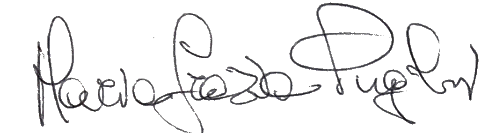 Maria Grazia Puglisi